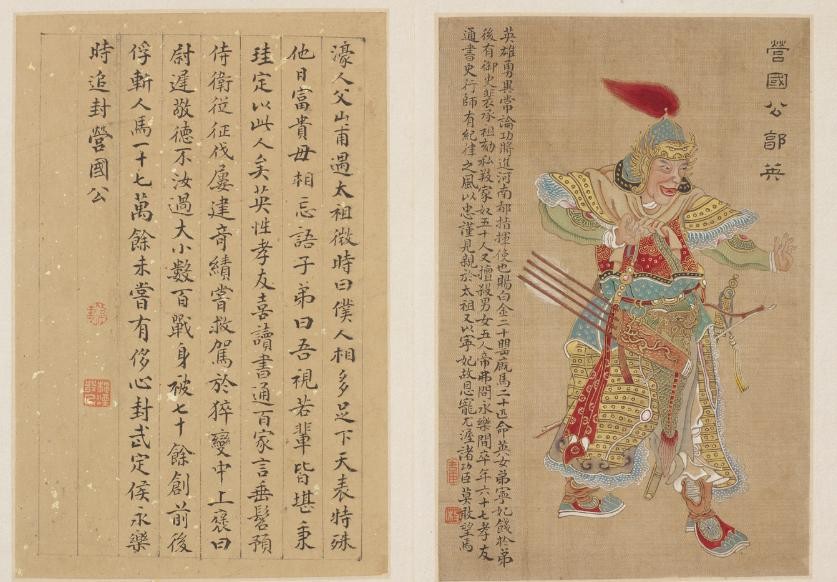 營國公郭英
英雄勇異常論功將進河南都指揮使也賜白金二十罌廄馬二十匹命英女弟寧妃餞於弟
後有御史裴承祖劾私殺家奴五十人又擅殺男女五人帝弗問永樂間卒年六十七孝友
通書史行師有紀律之風以忠謹見親於太祖又以寧妃故恩寵尤渥諸功臣莫敢望焉
濠人父山甫遇太祖微時曰僕人相多足下天表特殊
他日富貴毋相忘語子弟曰吾視若輩皆堪秉
珪定以此人矣英性孝友喜讀書通百家言垂髫預
侍衛從征伐屢建奇績嘗救駕於猝變中上褒曰
尉遲敬德不汝過大小數百戰身被七十餘創前後
俘斬人馬一十七萬餘未嘗有侈心封武定侯永樂
時追封營國公